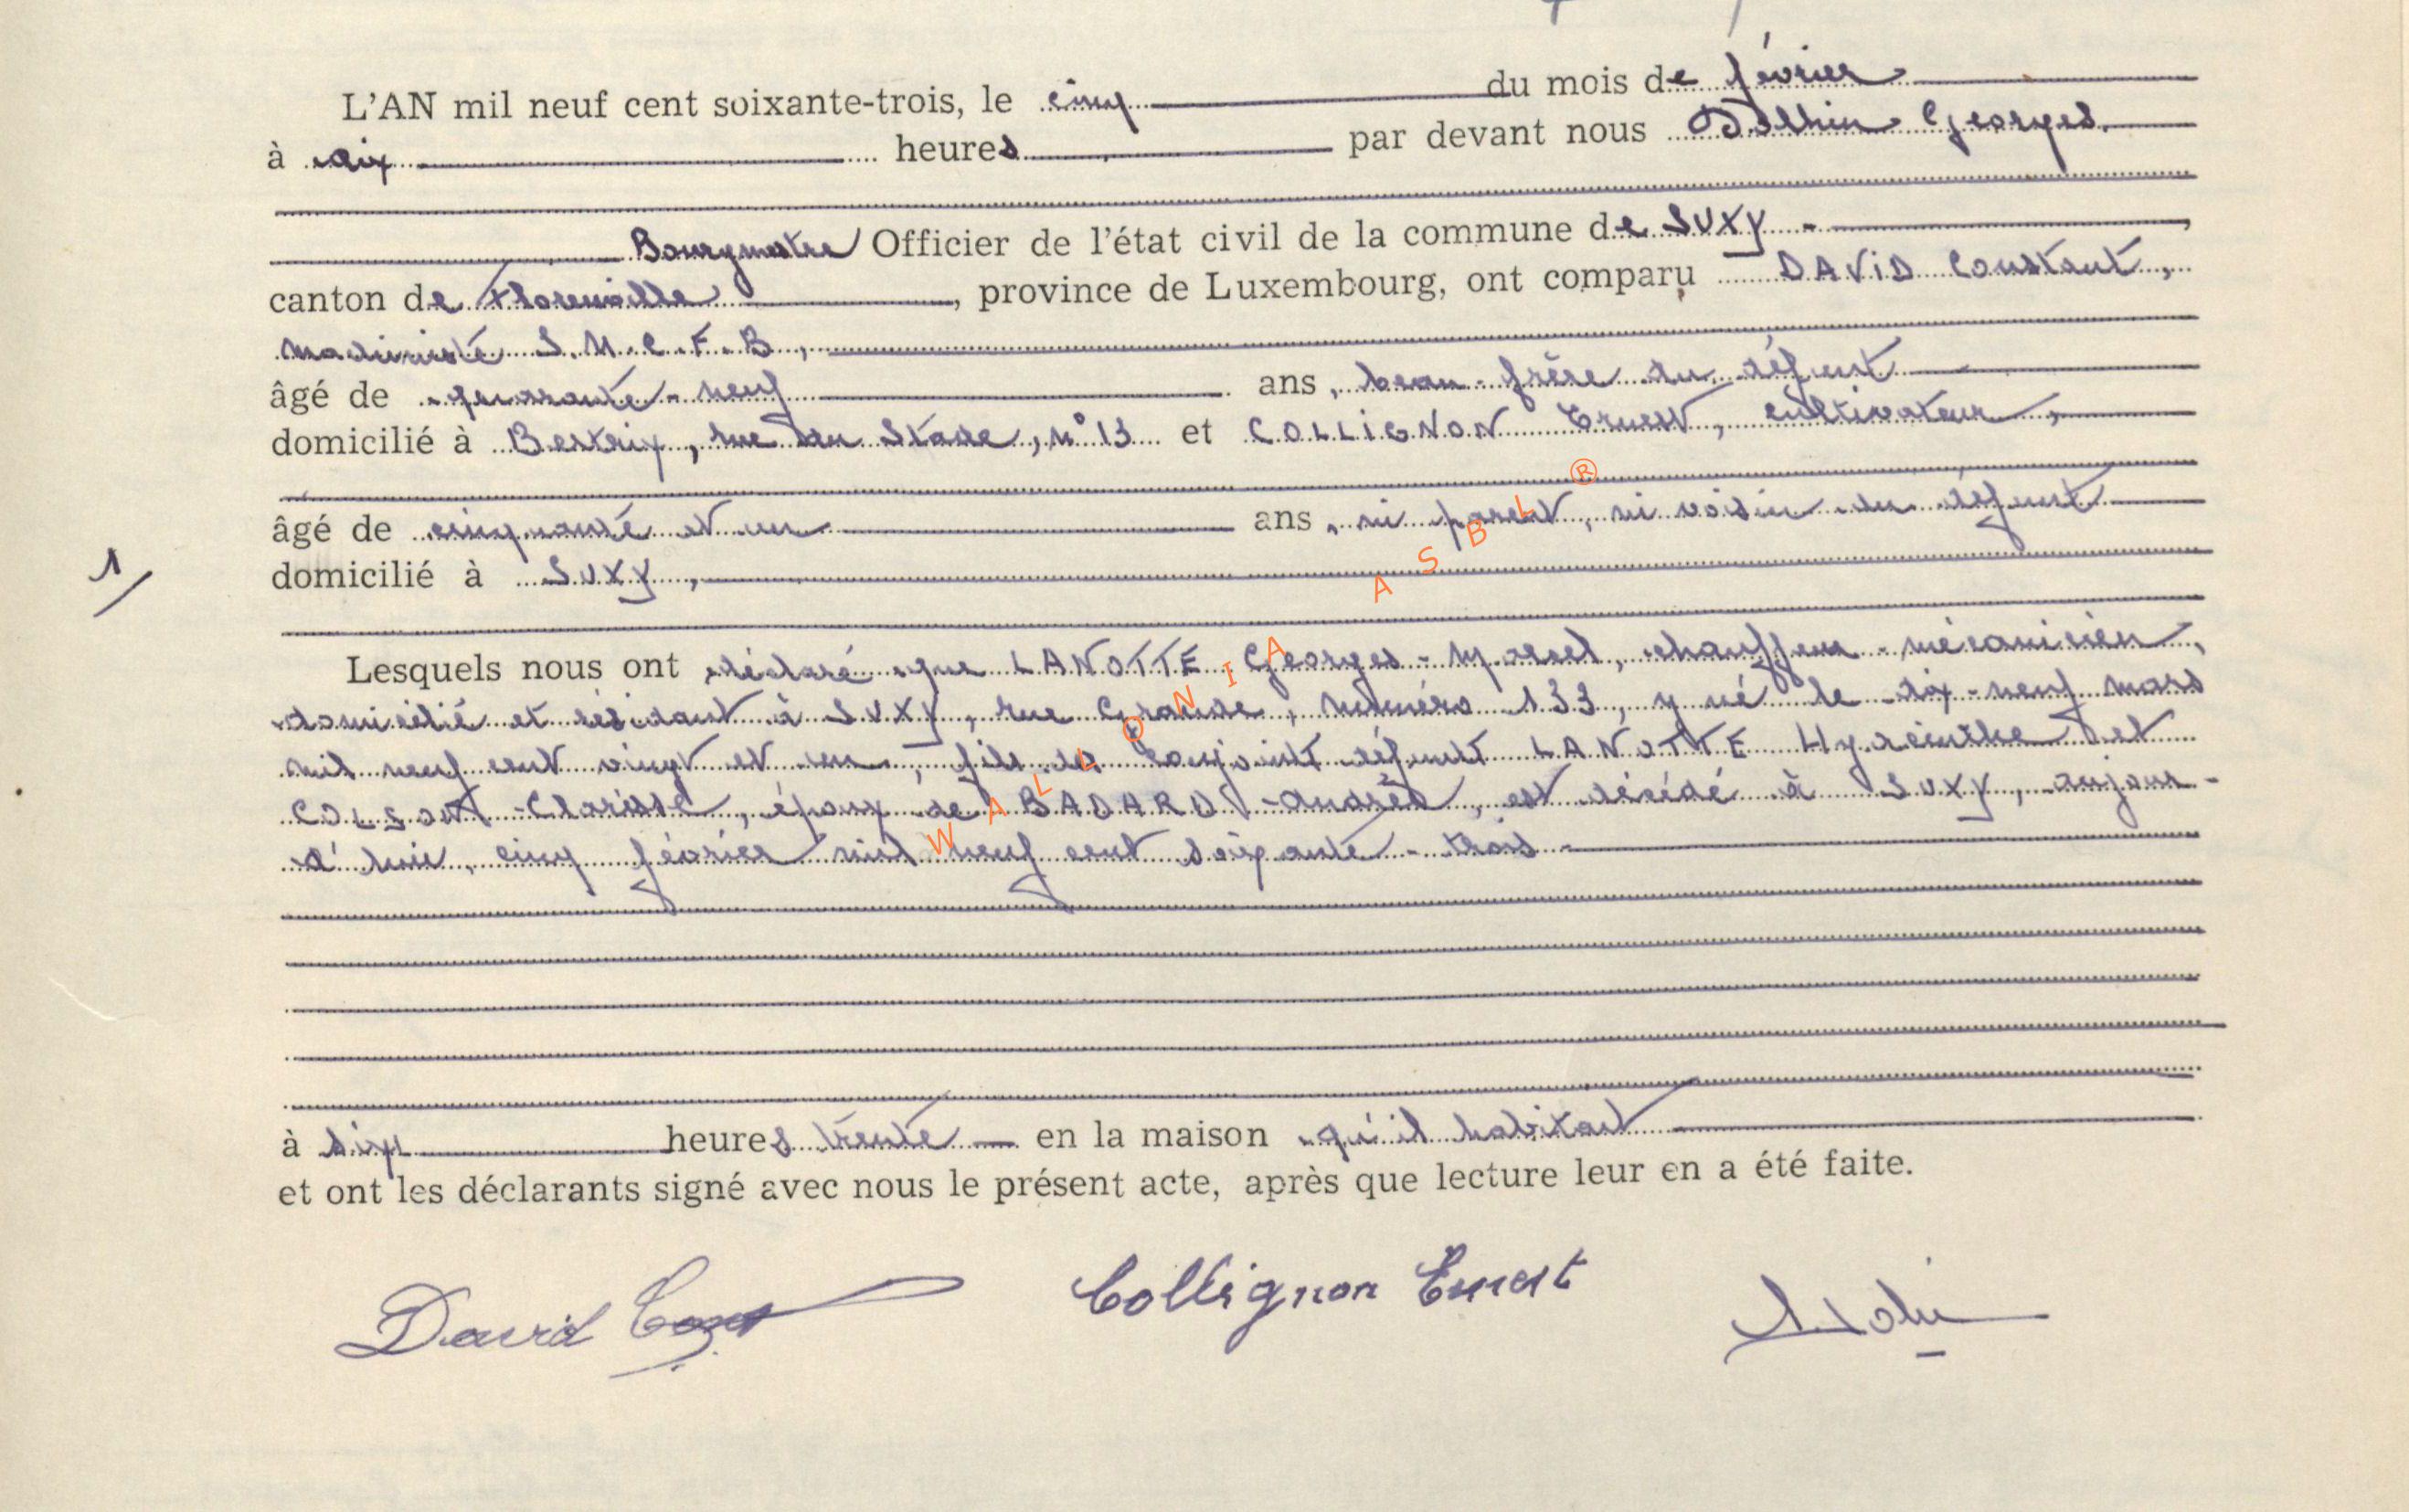 L'AN mil neuf cent soixante-trois, le cinq du mois de février
à dix heures par devant nous Georges
Bourgmestre Officier de l'état civil de la commune de SUXY
canton de Florenville, province de Luxembourg, ont comparu DAVID Constant,
machiniste S.N.C.F.B,
âgé de quarante-neuf ans, beau-frère du défunt
domicilié à Bertrix, rue du Stade, n° 13 et COLLIGNON Ernest, cultivateur,
âgé de cinquante et un ans, ni parent, ni voisin du défunt
domicilié à SUXY,
1/
Lesquels nous ont déclaré que LANOTTE Georges-Marcel, chauffeur-mécanicien,
domicilié et résidant à SUXY, rue Grande, numéro 133, y né le dix-neuf mars
mil neuf cent vingt et un, fils de conjoint défunts LANOTTE Hyacinthe et
COLSON Clarisse, époux de BADARD Andrée, est décédé à SUXY, aujour-
d'hui, cinq février mil neuf cent soixante-trois
à six heures trente en la maison qu'il habitait
et ont les déclarants signé avec nous le présent acte, après que lecture leur en a été faite.
David Const Collignon Ernest
WALLONICA ASBL ®